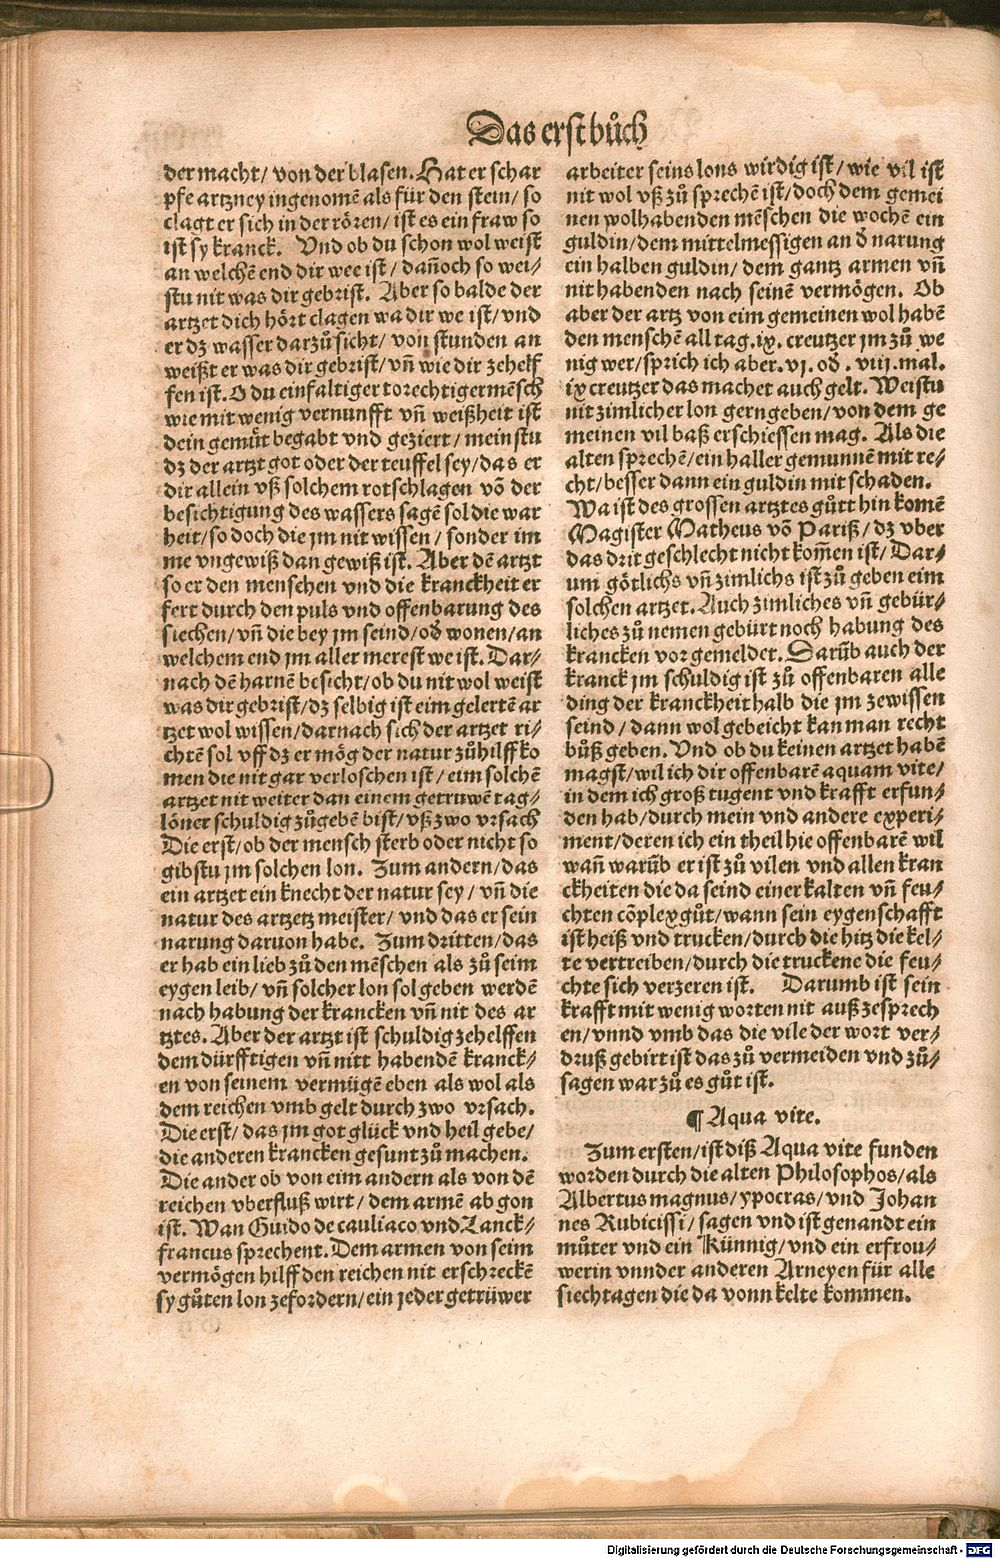 Das erst bůch
der macht/ von der blasen. Hat er schar
pfe artzney ingenomē als für den stein/ so
clagt er sich in der rören/ ist es ein fraw so
ist sy kranck. Vnd ob du schon wol weist
an welchē end dir wee ist/ dañoch so wei/
stu nit was dir gebrist. Aber so balde der
artzet dich hört clagen wa dir we ist/ vnd
er dz wasser darzů sicht/ von stunden an
weißt er was dir gebrist/ vñ wie dir zehelf
fen ist. O du einfaltiger torechtiger mēsch
wie mit wenig vernunfft vñ weißheit ist
dein gemüt begabt vnd geziert/ meinstu
dz der artzt got oder der teuffel sey/ das er
dir allein vß solchem rotschlagen vō der
besichtigung des wassers sagē sol die war
heit/ so doch die jm nit wissen/ sonder im
me vngewiß dan gewiß ist. Aber dē artzt
so er den menschen vnd die kranckheit er
fert durch den puls vnd offenbarung des
siechen/ vñ die bey jm seind/ oď wonen/ an
welchem end jm aller merest we ist. Dar/
nach dē harnē besicht/ ob du nit wol weist
was dir gebrist/ dz selbig ist eim gelertē ar
tzet wol wissen/ darnach sich der artzet ri/
chtē sol vff dz er mög der natur zůhilff ko
men die nit gar verloschen ist/ eim solchē
artzet nit weiter dan einem getruwē tag/
löner schuldig zůgebē bist/ vß zwo vrsach
Die erst/ ob der mensch sterb oder nicht so
gibstu jm solchen lon. Zum andern/ das
ein artzet ein knecht der natur sey/ vñ die
natur des artzetz meister/ vnd das er sein
narung daruon habe. Zum dritten/ das
er hab ein lieb zů den mēschen als zů seim
eygen leib/ vñ solcher lon sol geben werdē
nach habung der krancken vñ nit des ar
tztes. Aber der artzt ist schuldig zehelffen
dem dürfftigen vñ nitt habendē kranck/
en von seinem vermügē eben als wol als
dem reichen vmb gelt durch zwo vrsach.
Die erst/ das jm got glück vnd heil gebe/
die anderen krancken gesunt zů machen.
Die ander ob von eim andern als von dē
reichen vberfluß wirt/ dem armē ab gon
ist. Wan Guido de cauliaco vnd Lanck/
francus sprechent. Dem armen von seim
vermögen hilff den reichen nit erschreckē
sy gůten lon zefordern/ ein jeder getrüwer
arbeiter seins lons wirdig ist/ wie vil ist
nit wol vß zů sprechē ist/ doch dem gemei
nen wolhabenden mēschen die wochē ein
guldin/ dem mittelmessigen an ď narung
ein halben guldin/ dem gantz armen vñ
nit habenden nach seinē vermögen. Ob
aber der artz von eim gemeinen wol habē
den menschē all tag .ix. creutzer jm zů we
nig wer/ sprich ich aber .vj. oď .viij. mal.
ix creutzer das machet auch gelt. Weistu
nit zimlicher lon gern geben/ von dem ge
meinen vil baß erschiessen mag. Als die
alten sprechē/ ein haller gemunnē mit re/
cht/ besser dann ein guldin mit schaden.
Wa ist des grossen artztes gůtt hin komē
Magister Matheus vō Pariß/ dz vber
das drit geschlecht nicht kom̄en ist/ Dar/
um götlichs vñ zimlichs ist zů geben eim
solchen artzet. Auch zimliches vñ gebür/
liches zů nemen gebürt noch habung des
krancken vor gemeldet. Darūb auch der
kranck jm schuldig ist zů offenbaren alle
ding der kranckheit halb die jm zewissen
seind/ dann wol gebeicht kan man recht
bůß geben. Vnd ob du keinen artzet habē
magst/ wil ich dir offenbarē aquam vite/
in dem ich groß tugent vnd krafft erfun/
den hab/ durch mein vnd andere experi/
ment/ deren ich ein theil hie offenbarē wil
wañ warūb er ist zů vilen vnd allen kran
ckheiten die da seind einer kalten vñ feu/
chten cōplex gůt/ wann sein eygenschafft
ist heiß vnd trucken/ durch die hitz die kel/
te vertreiben/ durch die truckene die feu/
chte sich verzeren ist. Darumb ist sein
krafft mit wenig worten nit auß zesprech
en/ vnnd vmb das die vile der wort ver/
druß gebirt ist das zů vermeiden vnd zů/
sagen war zů es gůt ist.
¶ Aqua vite.
Zum ersten/ ist diß Aqua vite funden
worden durch die alten Philosophos/ als
Albertus magnus/ ypocras/ vnd Johan
nes Rubicissi/ sagen vnd ist genandt ein
můter vnd ein Künnig/ vnd ein erfrou/
werin vnnder anderen Arneyen für alle
siechtagen die da vonn kelte kommen.
Digitalisierung gefördert durch die Deutsche Forschungsgemeinschaft - DFG